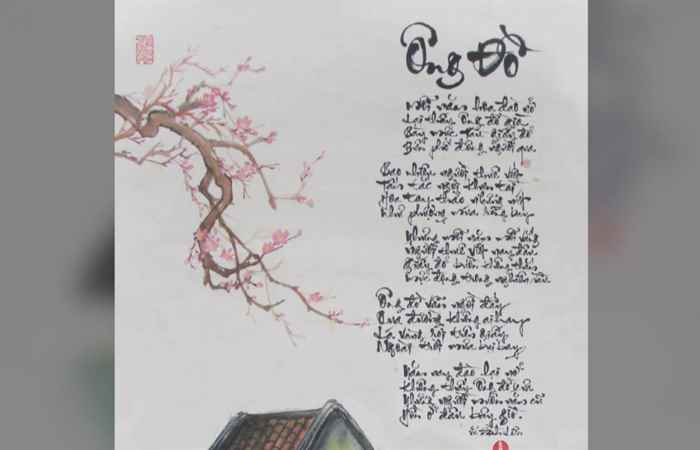 Ông Đồ
Mỗi năm hoa đào nở
Lại thấy Ông đồ già
Bày mực Tàu giấy đỏ
Bên phố đông người qua
Bao nhiêu người thuê viết
Tấm tắc ngợi khen tài
Hoa tay thảo những nét
Như phượng múa rồng bay
Nhưng mỗi năm mỗi vắng
Người thuê viết nay đâu
Giấy đỏ buồn không thắm
Mực đọng trong nghiên sầu
Ông đồ vẫn ngồi đấy
Qua đường không ai hay
Lá vàng rơi trên giấy
Ngoài trời mưa bụi bay
Năm nay đào lại nở
Không thấy Ông đồ xưa
Những người muôn năm cũ
Hồn ở đâu bây giờ.
Vũ Đình Liên